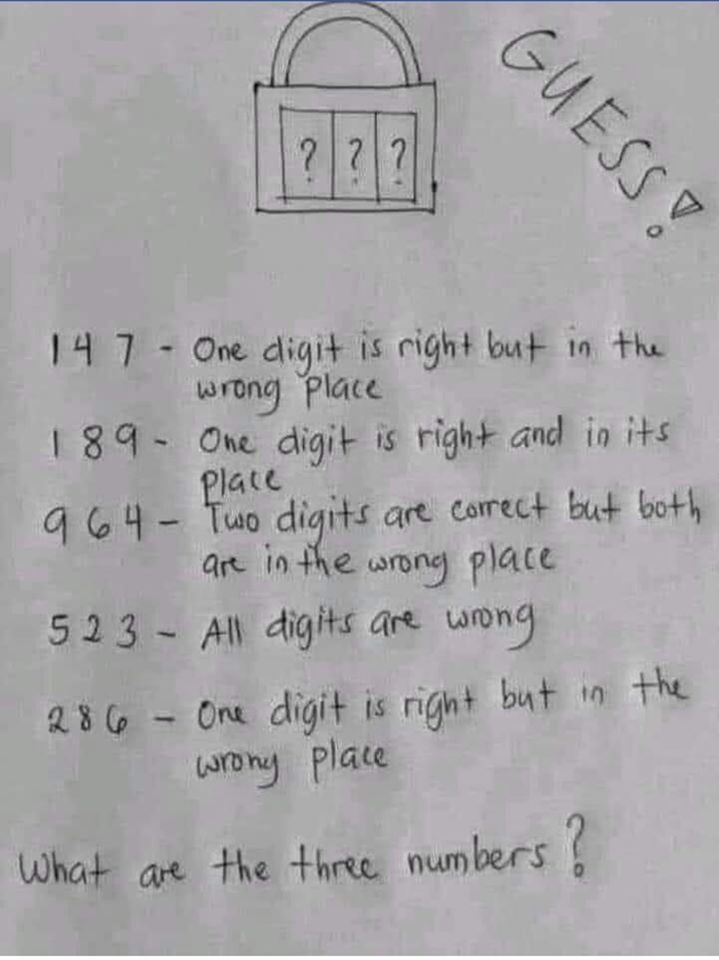 GUESS!
? ? ?
147 - One digit is right but in the
wrong place
189 - One digit is right and in its
place
964 - Two digits are correct but both
are in the wrong place
523 - All digits are wrong
286 - One digit is right but in the
wrong place
What are the three numbers?